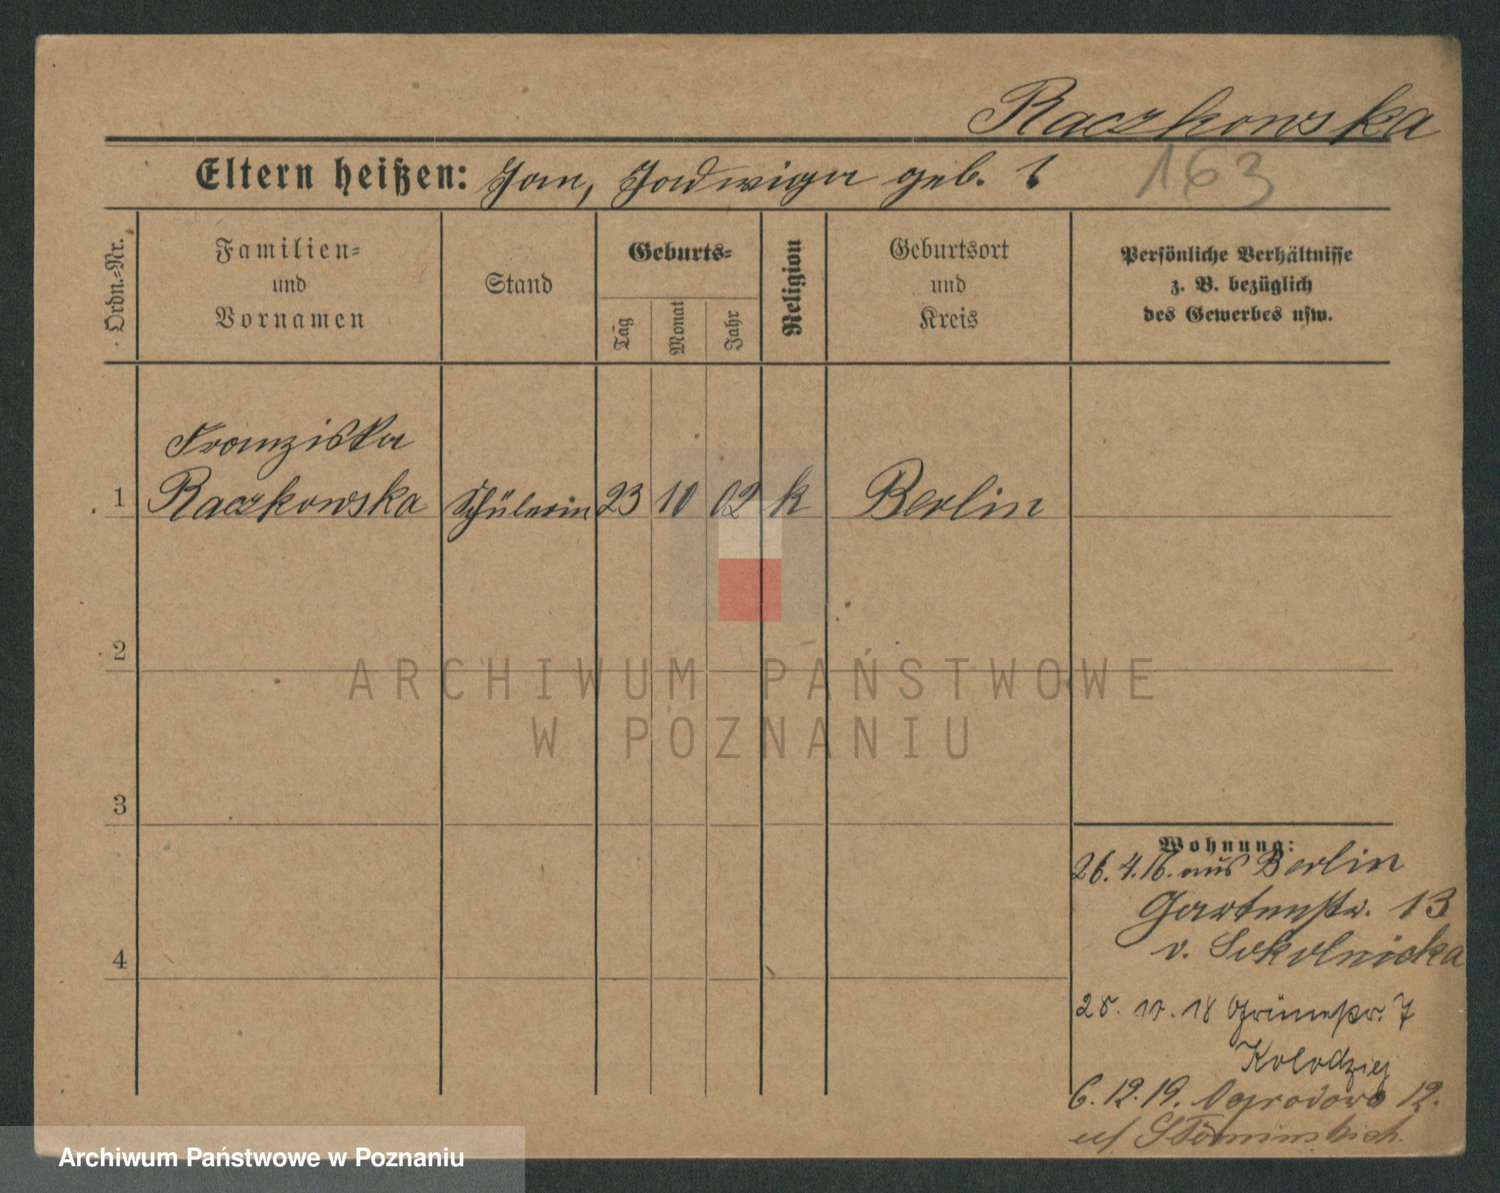 Raczkowska
Eltern heißen: Jan, Jadwiga geb.
163
Ordn.=Nr.
Familien=
und
Vornamen
Stand
Geburts=
Tag
Monat
Jahr
Religion
Geburtsort
und
Kreis
Persönliche Verhältnisse
z. B. bezüglich
des Gewerbes usw.
Franziska
1 Raczkowska Schülerin 23 10 02 k Berlin
2
ARCHIWUM PAŃSTWOWE
W POZNANIU
3
Wohnung:
26. 4. 16. aus Berlin
Gartenstr. 13
v. Sokolnicka
4
18 Grünestr. 7
Kolodziej
6. 12. 19. Ogrodowa 12.
Archiwum Państwowe w Poznaniu